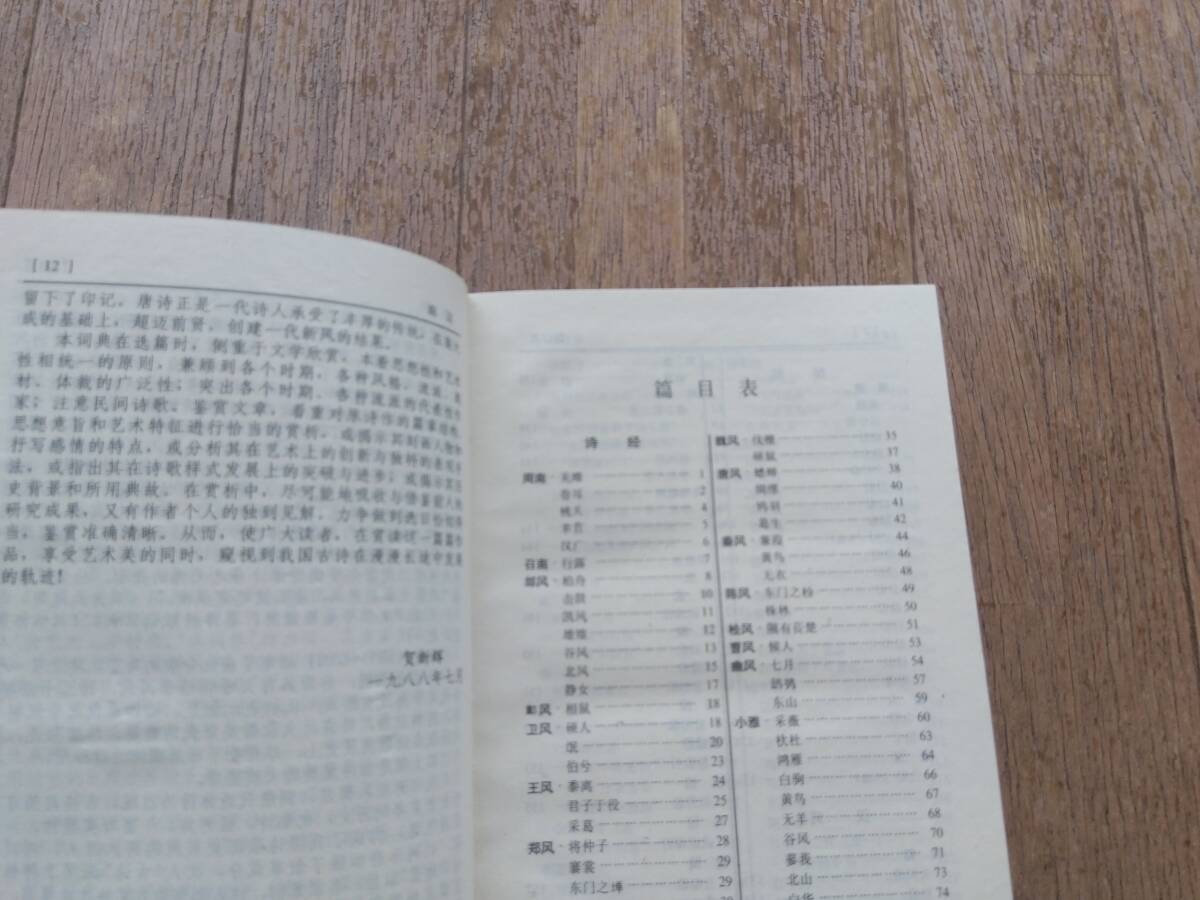 [ 12 ]
留下了印记。唐诗正是一代诗人承受了丰厚的传统，在
成的基础上，超迈前贤，创建一代新风的结果。
本词典在选篇时，侧重于文学欣赏，本着思想性和艺术
性相统一的原则，兼顾到各个时期、各种风格、流派、题
材、体裁的广泛性；突出各个时期、各种流派的代表性作
家；注意民间诗歌。鉴赏文章，着重对原诗作的篇章结构、
思想意旨和艺术特征进行恰当的赏析，或揭示其刻画人物和
行写感情的特点，或分析其在艺术上的创新与独特的表现手
法，或指出其在诗歌样式发展上的突破与进步；或揭示其历
史背景和所用典故。在赏析中，尽可能地吸收与借鉴前人的
研究成果，又有作者个人的独到见解，力争做到选目恰
当，鉴赏准确清晰。从而，使广大读者，在赏读这一篇篇作
品，享受艺术美的同时，窥视到我国古诗在漫漫长途中发展
的轨迹！
贺新辉
一九八八年七月
篇目表
诗经
周南·关雎 1
卷耳 2
桃夭 4
芣苢 5
汉广 6
召南·行露 7
邶风·柏舟 8
击鼓 10
凯风 11
雄雉 12
谷风 13
北风 15
静女 17
鄘风·相鼠 18
卫风·硕人 18
氓 20
伯兮 23
王风·黍离 24
君子于役 25
采葛 27
郑风·将仲子 28
褰裳 29
东门之墠 29
魏风·伐檀 35
硕鼠 37
唐风·蟋蟀 38
绸缪 40
鸨羽 41
葛生 42
秦风·蒹葭 44
黄鸟 46
无衣 48
陈风·东门之枌 49
株林 50
桧风·隰有苌楚 51
曹风·候人 53
豳风·七月 54
鸱鸮 57
东山 59
小雅·采薇 60
杕杜 63
鸿雁 64
白驹 66
黄鸟 67
无羊 68
谷风 70
蓼莪 71
北山 73
白华 74